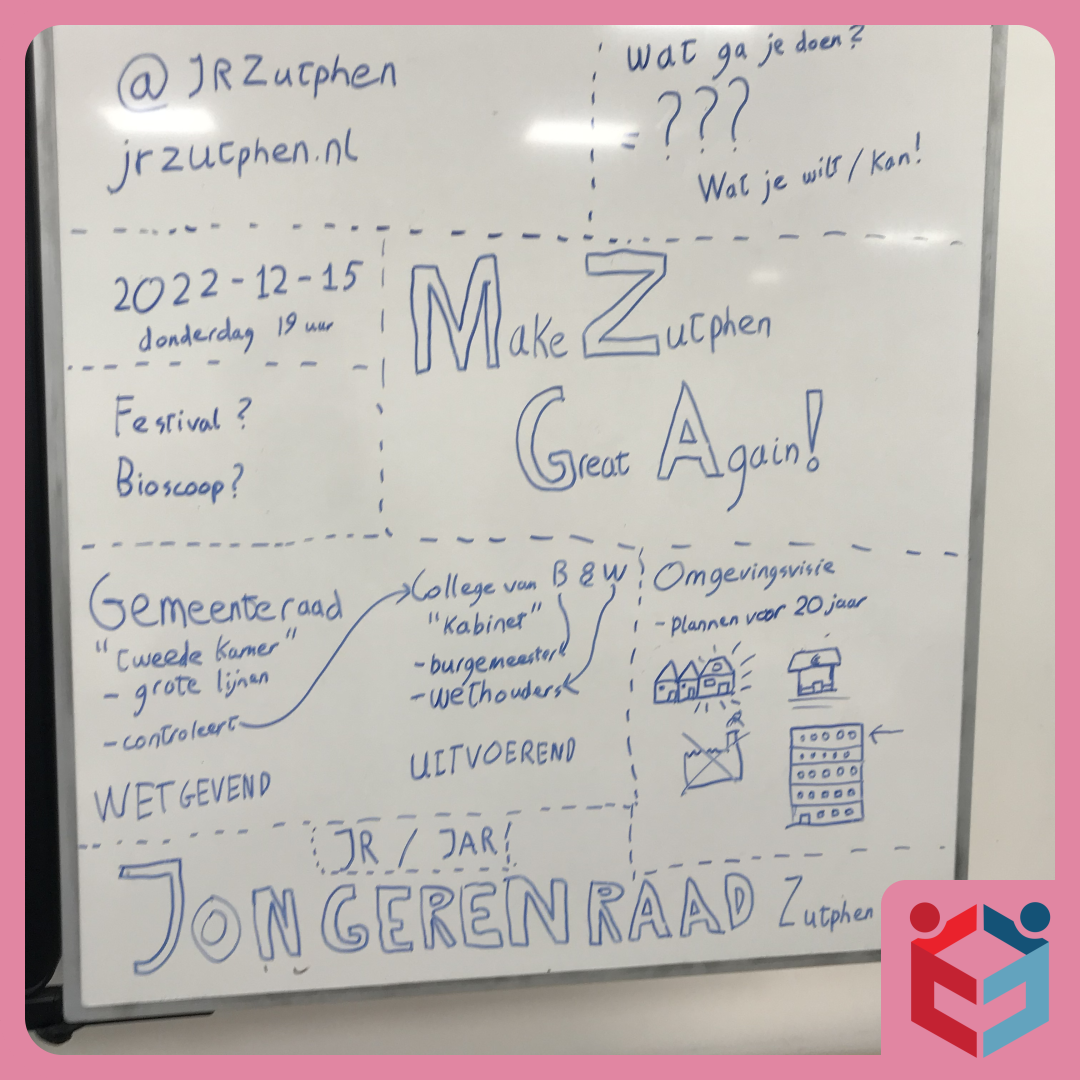 @JRZutphen
jrzutphen.nl
Wat ga je doen?
= ???
Wat je wilt / kan!
2022-12-15
donderdag 19 uur
Festival?
Bioscoop?
Make Zutphen
Great Again!
Gemeenteraad
"tweede kamer"
- grote lijnen
- controleert
WETGEVEND
College van B & W
"Kabinet"
- burgemeester
- wethouders
UITVOEREND
Omgevingsvisie
- plannen voor 20 jaar
JR / JAR!
JONGERENRAAD Zutphen